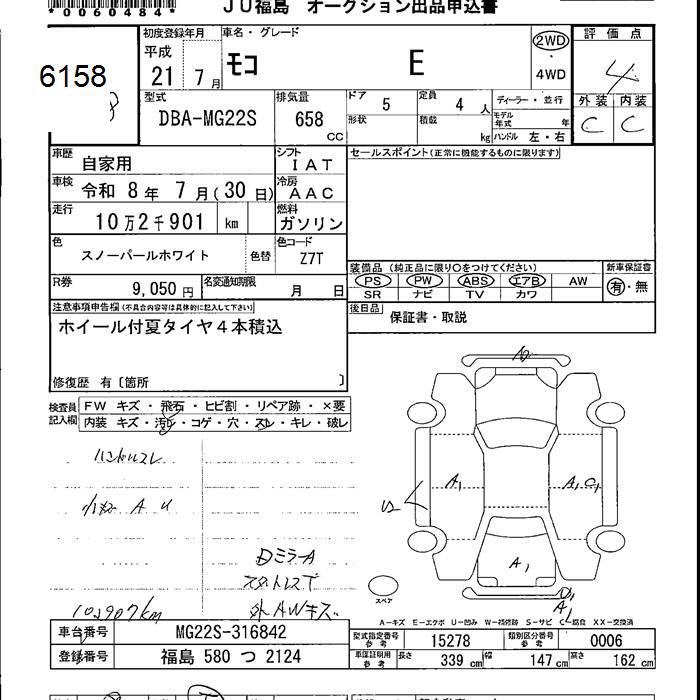 *0060484*
JU福島 オークション出品申込書
6158
初度登録年月
平成
21 7月
車名・グレード
モコ E
2WD
・
4WD
評価点
4
外装 内装
C C
型式
DBA-MG22S
排気量
658
CC
ドア 5
定員 4 人
形状
積載 kg
ディーラー・並行
モデル年式 年
ハンドル 左・右
車歴
自家用
シフト
IAT
セールスポイント(正常に機能するものに限ります)
車検
令和 8年 7月(30日)
冷房
AAC
走行
10万2千901 km
燃料
ガソリン
色
スノーパールホワイト
色替
色コード
Z7T
R券
9,050円
名変通知期限
月 日
装備品 (純正品に限り〇をつけてください)
新車保証書
PS PW ABS エアB AW
有・無
SR ナビ TV カワ
注意事項申告欄(不具合内容等は具体的に記入して下さい)
ホイール付夏タイヤ4本積込
後日品
保証書・取説
修復歴 有〔箇所 〕
検査員記入欄
FW キズ・飛石・ヒビ割・リペア跡・×要
内装 キズ・汚レ・コゲ・穴・スレ・キレ・破レ
ハンドルスレ
A U
DミラーA
スタットレス下
外AWキズ
102907km
A1
A1 C1
A1
U2
A1
スペア
A-キズ E-エクボ U-凹み W-補修跡 S-サビ C-腐食 XX-交換済
車台番号
MG22S-316842
登録番号
福島 580 つ 2124
型式指定番号
参考
15278
類別区分番号
参考
0006
車庫証明用
参考
長さ 339 cm
幅 147 cm
高さ 162 cm